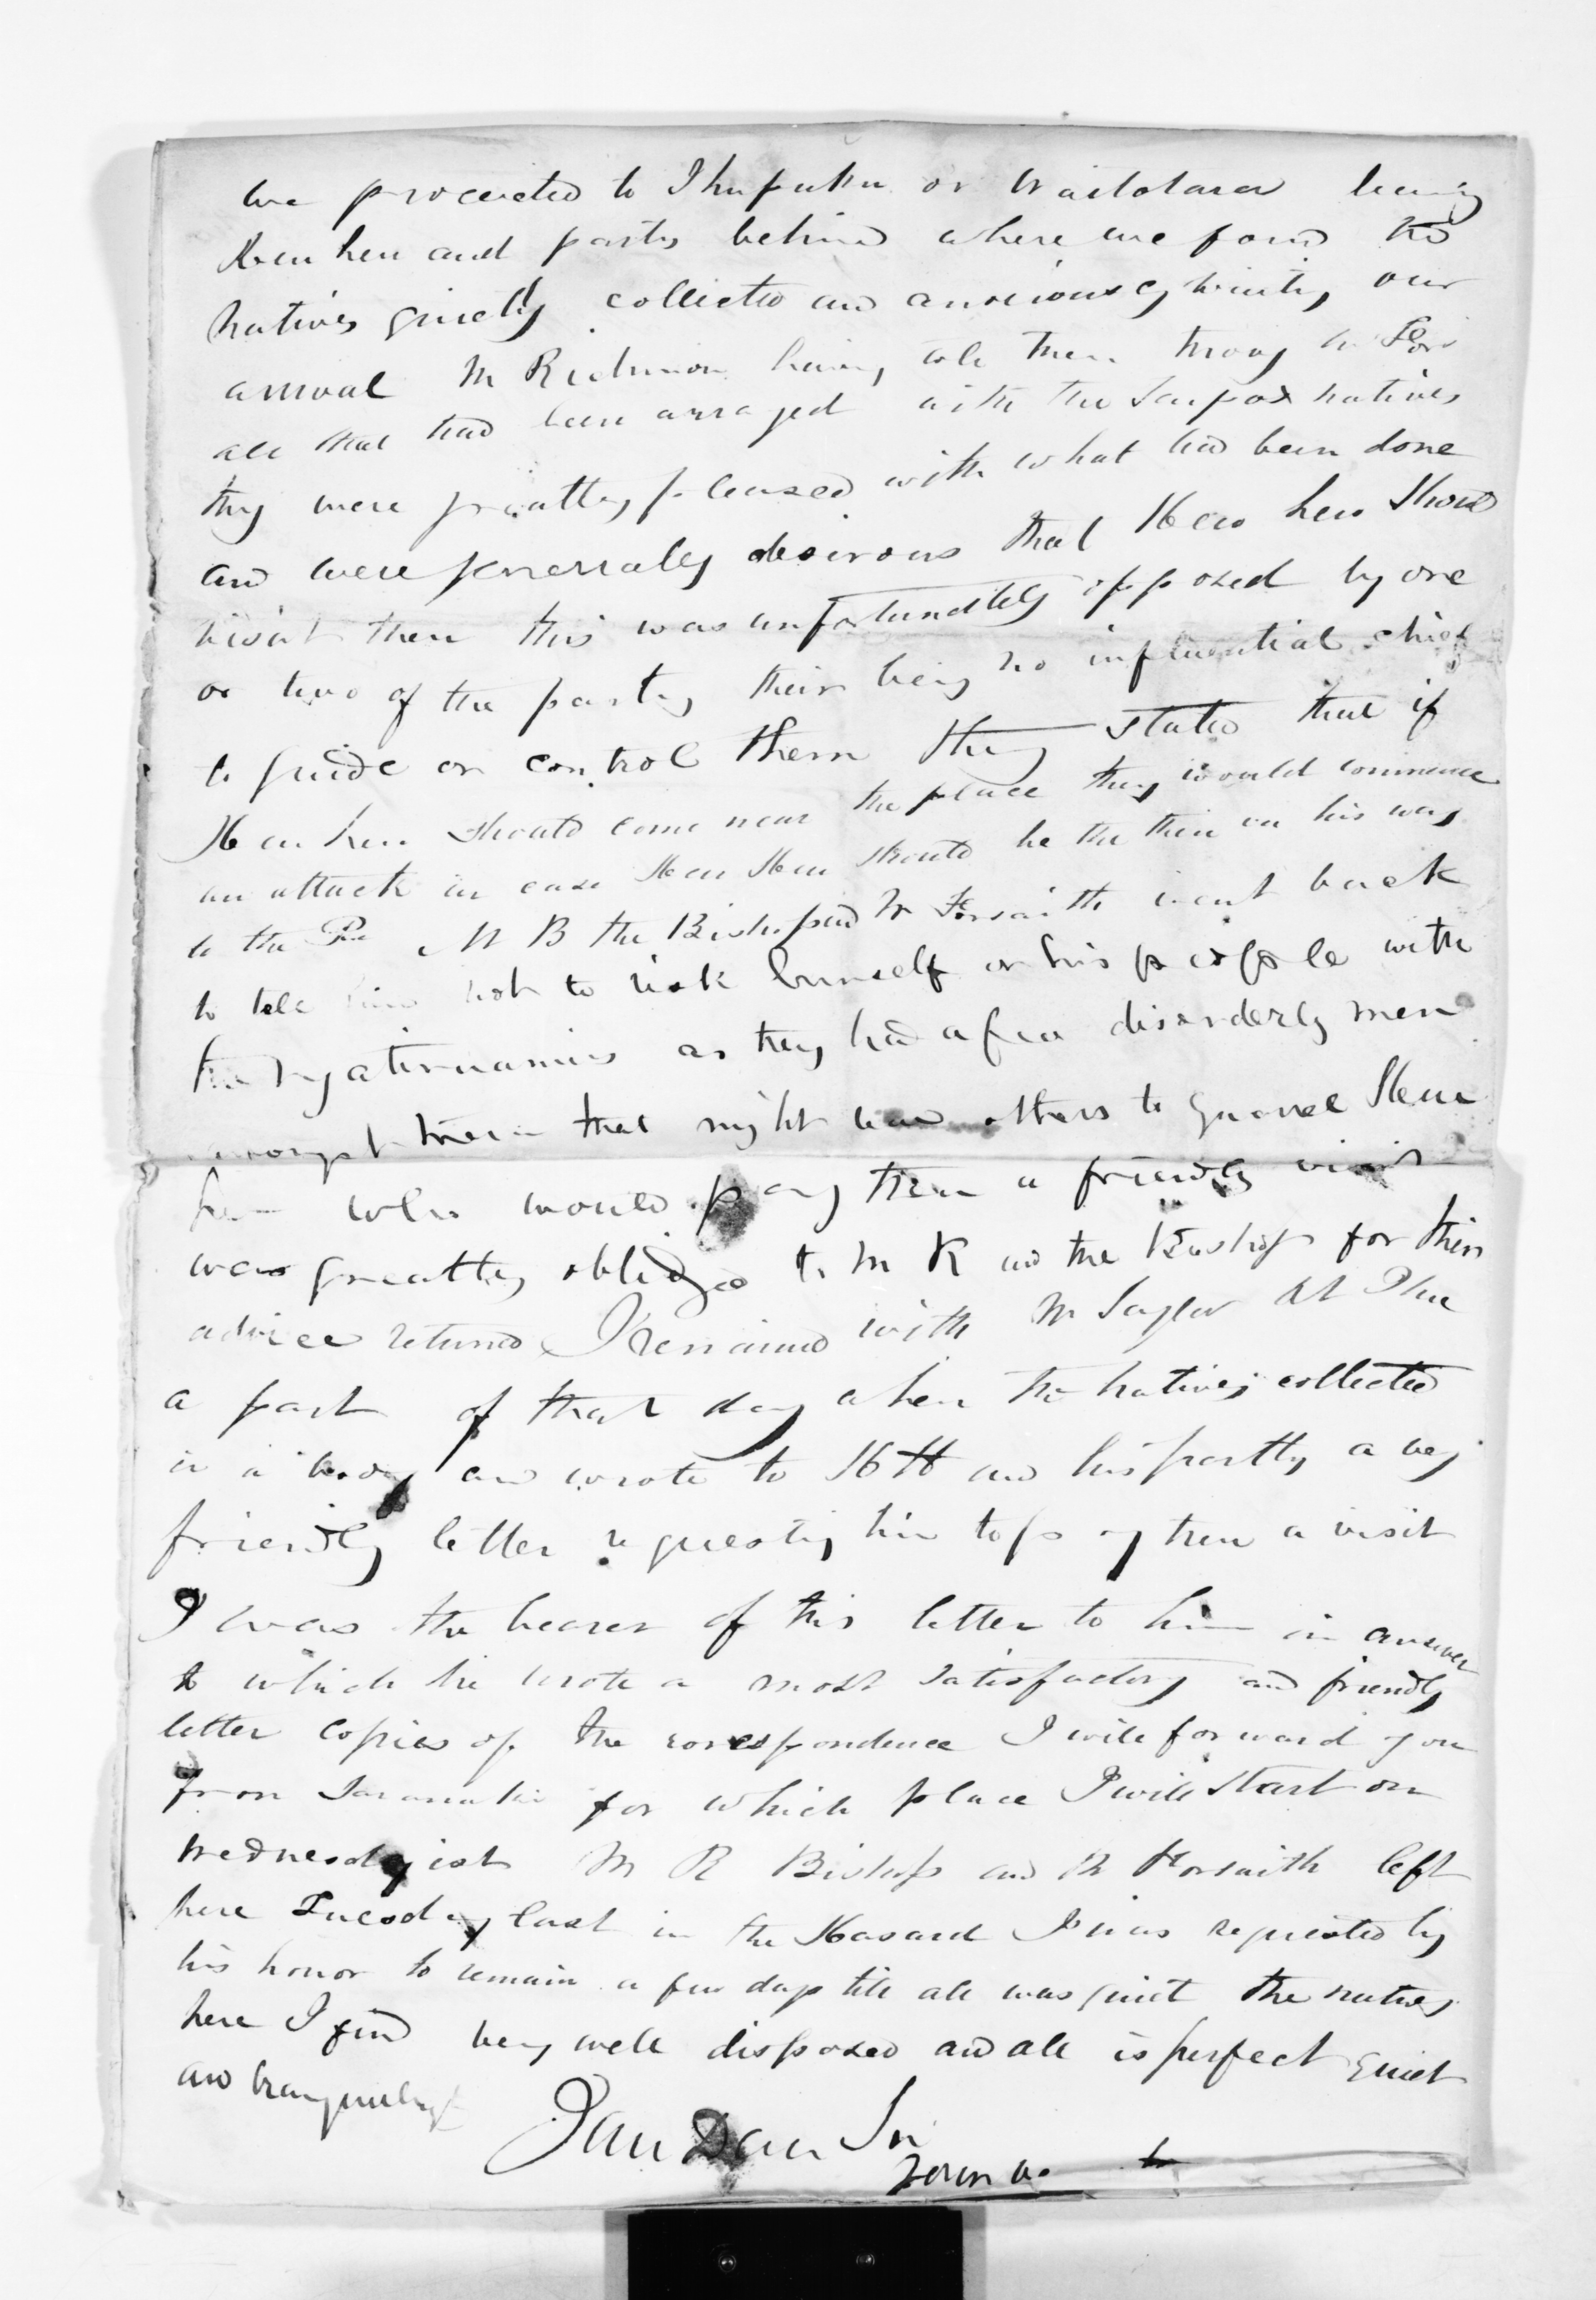 we proceeded to Ihupuku or Waitotara leaving
Heu heu and party behind where we found the
natives quietly collected and anxiously waiting our
arrival Mr Richmond having told them throug Mr For
all that had been arraged with the Taupo natives
they were greattly pleased with what had been done
and were generally desirous that Heu heu should
visit them this was unfortunatlely opposed by one
or two of the party their being no influential chief
to guide or control them they stated that if
Heu heu should come near the place they would commence
an attack in case Heu Heu should be the then on his way
to the Pa Mr R the Bishop and Mr Forsaith went back
to tell him not to risk himself or his people with
the Ngatiruanuis as they had a few disorderly men
amongst them that might lead others to quarrel Heu
heu who would pay them a friendly visit
was greattly oblidged to Mr R and the Bishop for thier
advice returned I remained with Mr Taylor at the
a part of that day when the natives collected
in a body and wrote to H H and his partty a very
friendly letter requesting him to pay them a visit
I was the bearer of this letter to him in answer
to which he wrote a most satisfactory and friendly
letter copies of the correspondence I will forward you
from Taranaki for which place I will start on
Wednesday ist Mr R Bishop and Mr Forsaith left
here Tuesday last in the Hasard I was requested by
his honor to remain a few days till all was quiet the natives
here I find very well disposed and all is perfect quiet
and tranquility
I am Dear Sir